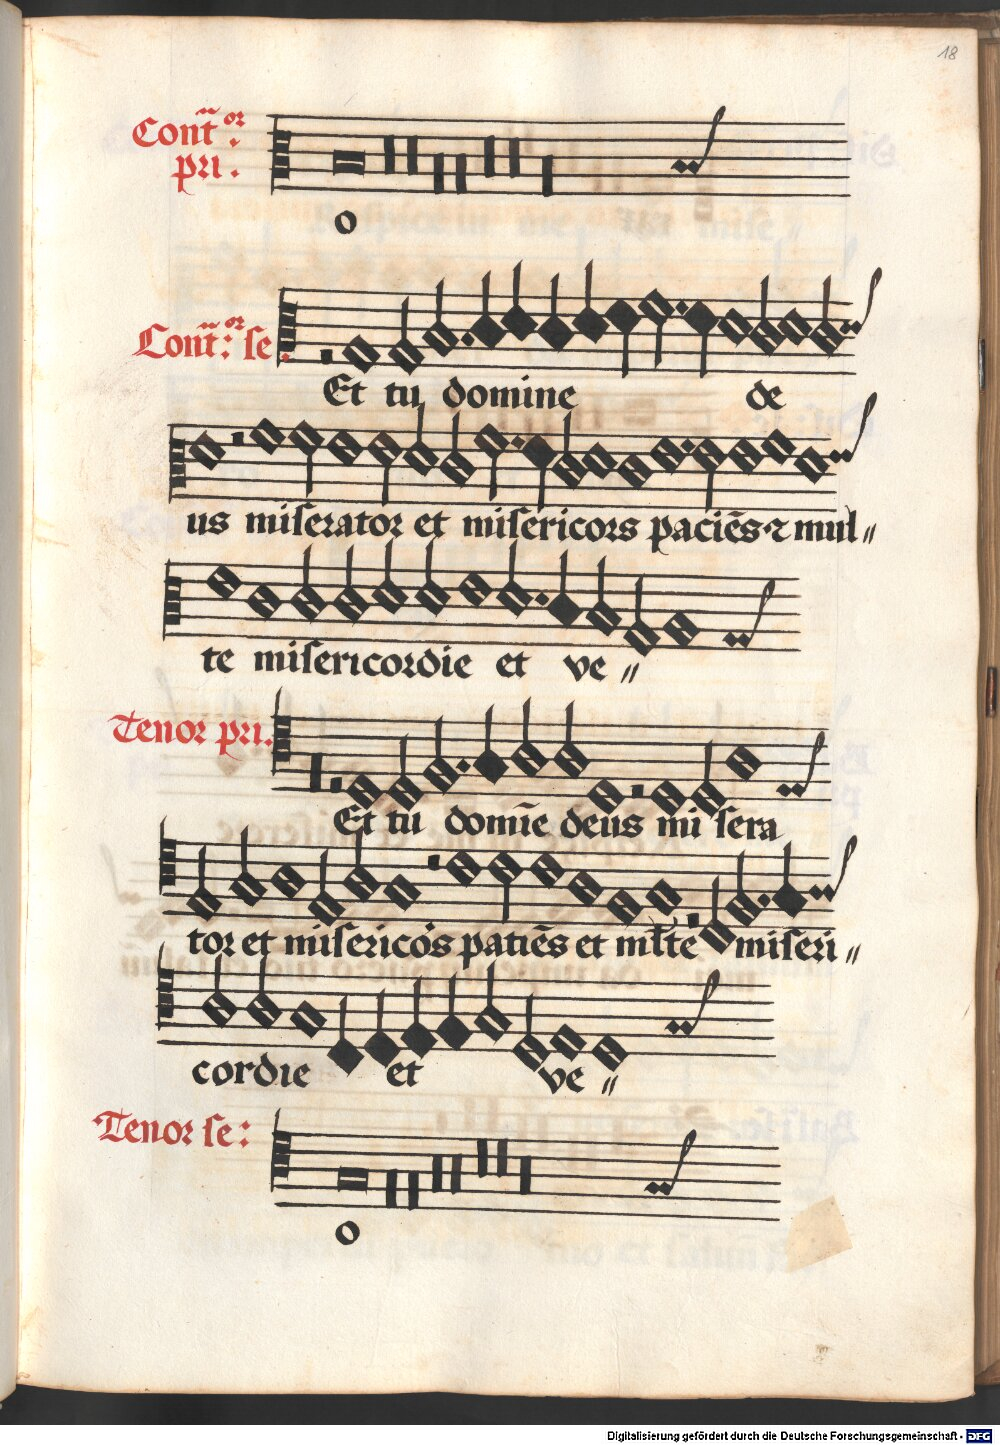 18
Contᷓ or:
pri.
o
Contᷓ or: se.
Et tu domine de
us miserator et misericors paciēs ⁊ mul〃
te misericordie et ve〃
Tenor pri.
Et tu domīe deus mi sera
tor et misericōs patiēs et ml̄te miseri〃
cordie et ve〃
Tenor se:
o
Digitalisierung gefördert durch die Deutsche Forschungsgemeinschaft - DFG